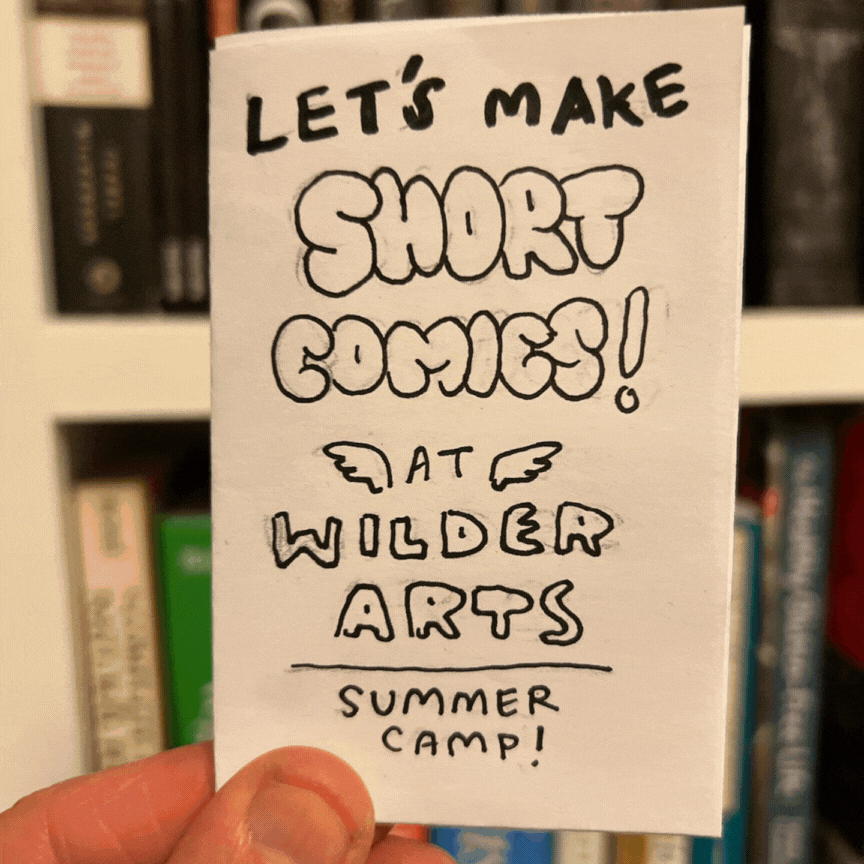 LET'S MAKE
SHORT
COMICS!
AT
WILDER
ARTS
SUMMER
CAMP!